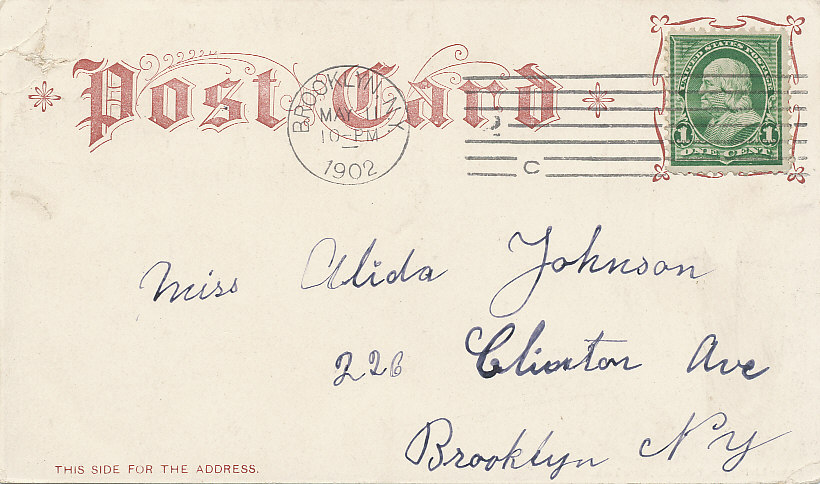 Post Card
BROOKLYN, N.Y.
MAY 11
10-PM
1902
C
UNITED STATES POSTAGE
1 1
ONE CENT
Miss Alida Johnson
226 Clinton Ave
Brooklyn NY
THIS SIDE FOR THE ADDRESS.